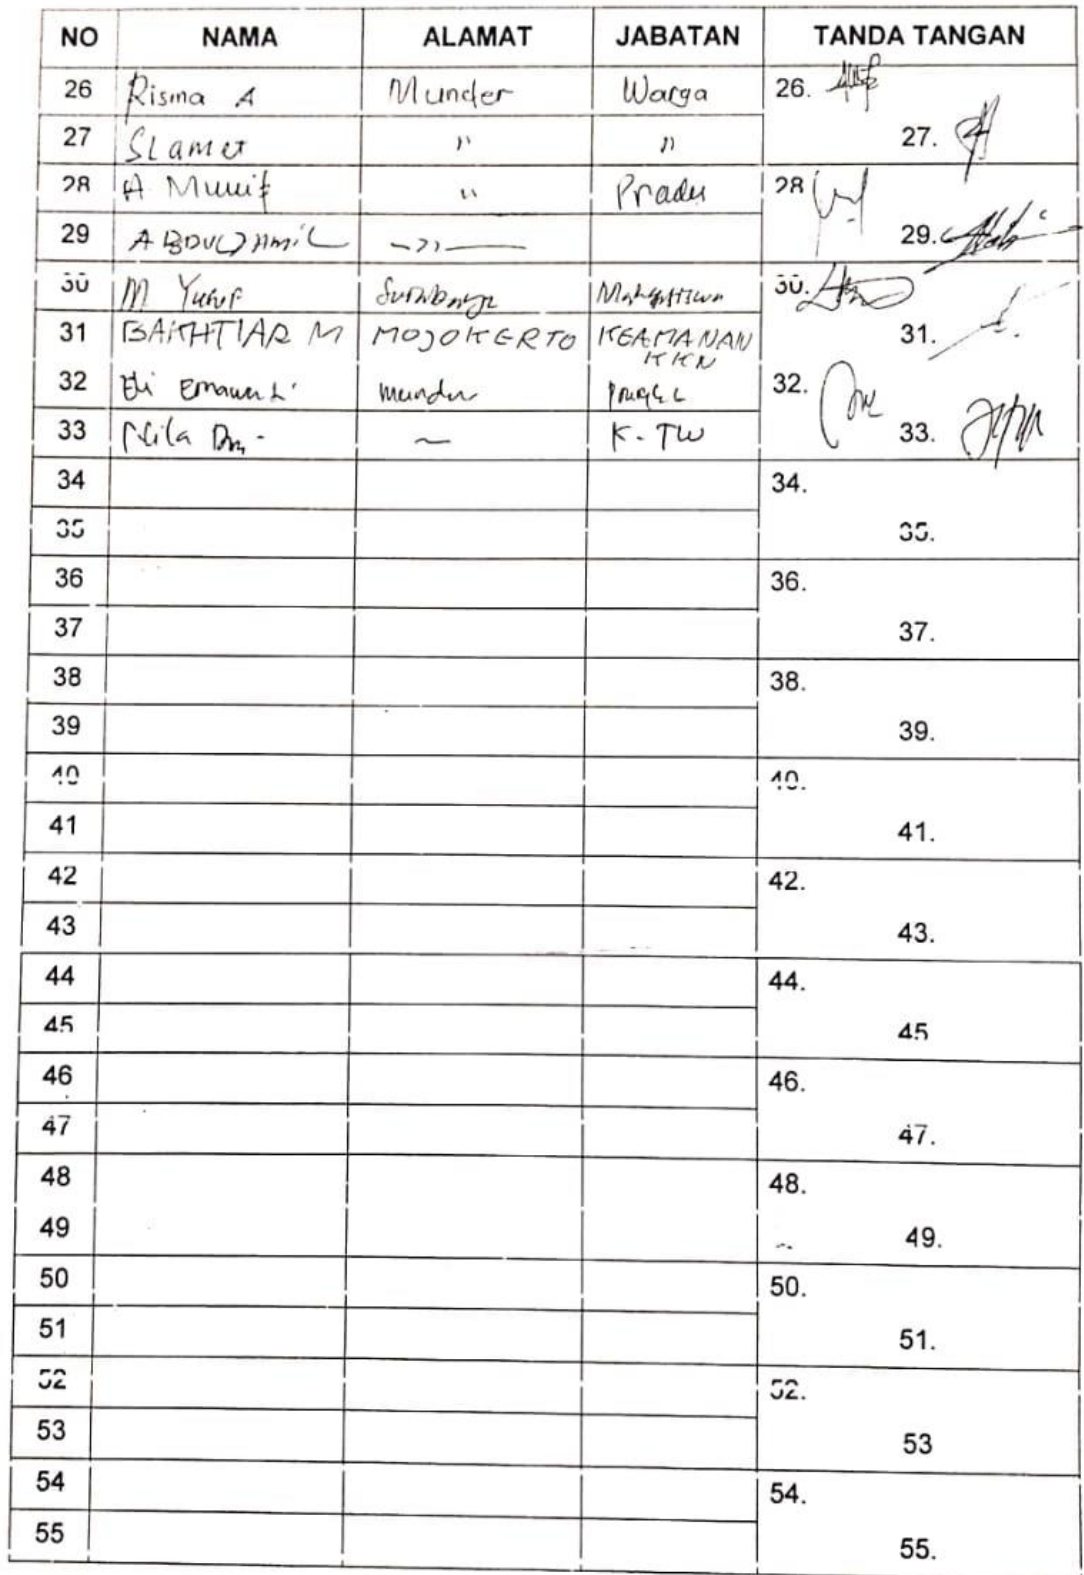 NO NAMA ALAMAT JABATAN TANDA TANGAN
26 Risma A Munder Warga 26.
27 Slamet " " 27.
28 A Munif " 28
29 ABDUL JAMIL —"— 29.
30 M Yusuf Surabaya Mahasiswa 30.
31 BAKHTIAR M MOJOKERTO KEAMANAN 31.
KKN
32 Eli Ernawati munder 32.
33 Nila ~ K-TW 33.
34 34.
35 35.
36 36.
37 37.
38 38.
39 39.
40 40.
41 41.
42 42.
43 43.
44 44.
45 45
46 46.
47 47.
48 48.
49 49.
50 50.
51 51.
52 52.
53 53
54 54.
55 55.